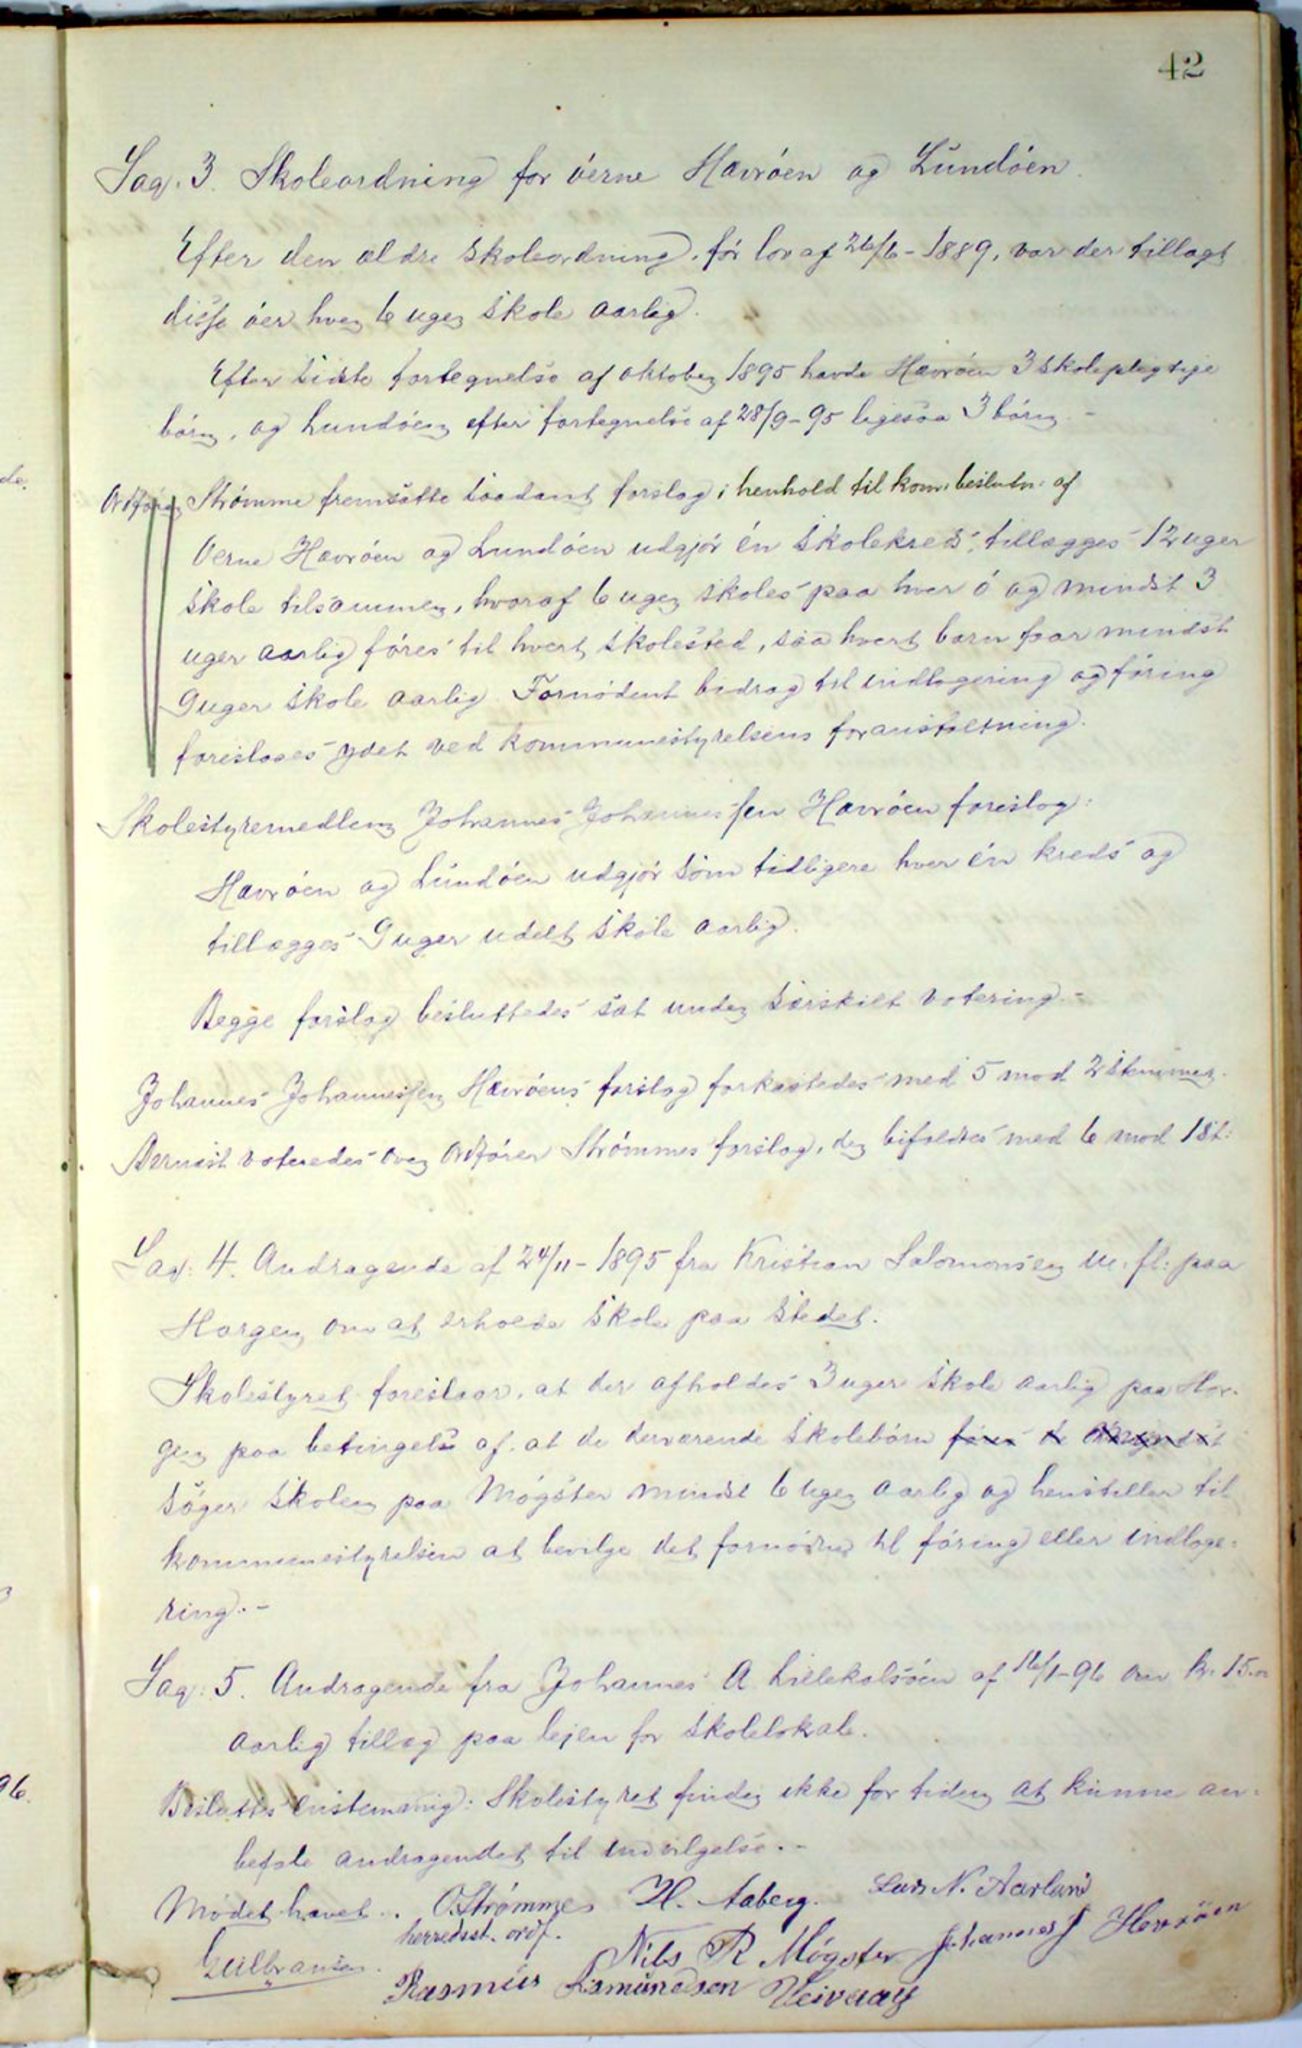 42
Sag. 3. Skoleordning for óerne Hævróen og Lundóen.
Efter den ældre skoleordning, fór lov af 26/6-1889, var der tillagt
disse óer hver 6 uger skole aarlig.
Efter sidste fortegnelse af oktober 1895 havde Hævróen 3 skolepligtige
bórn, og Lundóen efter fortegnelse af 28/9-95 ligesaa 3 bórn.-
Ordfórer Strómme fremsatte saadant forslag i henhold til kom. beslutn. af
Óerne Hævróen og Lundóen udgjór én skolekreds, tillægges 12 uger
skole tilsammen, hvoraf 6 uger skoles paa hver ó og mindst 3
uger aarlig fóres til hvert skolested, saa hvert barn faar mindst
9 uger skole aarlig. Fornódent bidrag til indlogering og fóring
foreslaaes ydet ved kommunestyrelsens foranstaltning.
Skolestyremedlem Johannes Johannessen Hævróen foreslog:
Hævróen og Lundóen udgjór som tidligere hver én kreds og
tillægges 9 uger udelt skole aarlig.
Begge forslag besluttedes sat under særskilt votering.-
Johannes Johannessen Hævróens forslag forkastedes med 5 mod 2 stemmer.
Dernæst voteredes over Ordfórer Strómmes forslag, der bifaldtes med 6 mod 1 st:
Sag: 4. Andragende af 24/11-1895 fra Kristian Salomonsen m. fl: paa
Horgen om at erholde skole paa stedet.
Skolestyret foreslaar, at der afholdes 3 uger skole aarlig paa Hor-
gen paa betingelse af, at de derværende skolebórn
sóger skolen paa Mógster mindst 6 uger aarlig og henstiller til
kommunestyrelsen at bevilge det fornódne til fóring eller indloge-
ring.-
Sag: 5. Andragende fra Johannes A. Lillekalsóen af 16/1-96 om kr. 15.00
aarlig tillæg paa lejen for skolelokale.
Besluttes enstemmig: Skolestyret finder ikke for tiden at kunne an-
befale andragendet til indvilgelse.-
Módet hævet. O. Strómme H. Aaberg. Lars N. Aarland
herredsst. ordf.
Gulbransen. Nils R Mógster Johannes J Hævröen
Rasmus Asmundsen
de.
96.